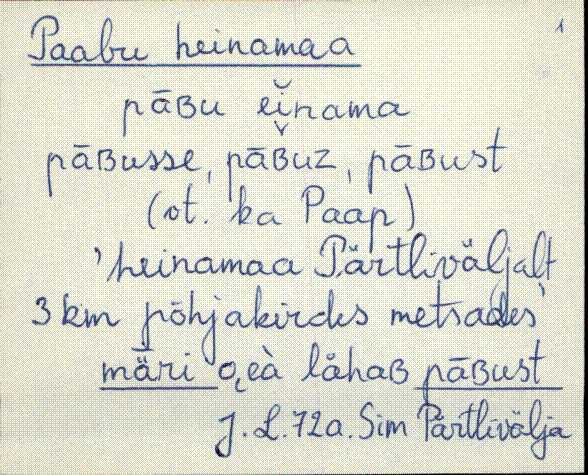 1
Paabu heinamaa
pāʙu eĭnama
pāʙusse, pāʙuz̆, pāʙust
(vt. ka Paap)
'heinamaa Pärtliväljalt
3 km põhjakirdes metsades'
märi o̬eà låhaʙ pāʙust
J. L. 72a. Sim Pärtlivälja